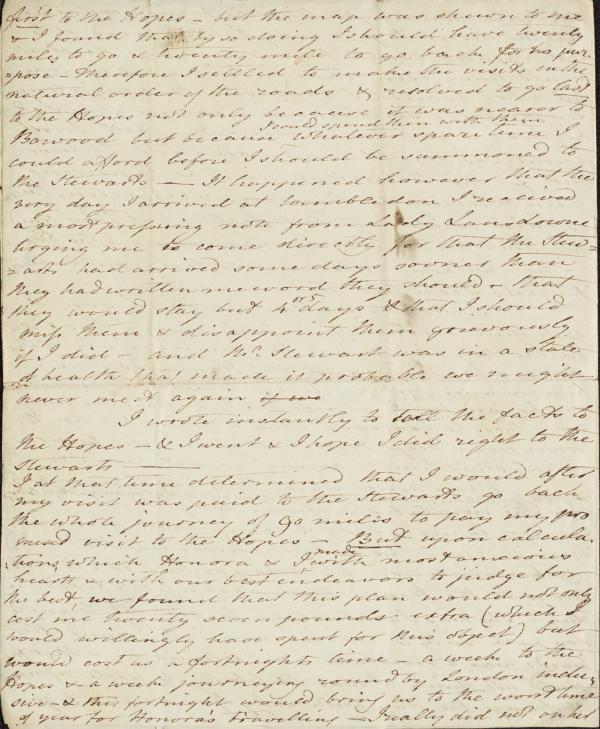 first to the Hopes – but the map was shewn to me
& I found that by so doing I should have twenty
miles to go & twenty mile to go back for no pur-
=pose – Therefore I settled to make the visits in the
natural order of the roads & resolved to go last
to the Hopes not only because it was nearer to
I could spend them with them
Bowood but because whatever spare time I
could afford before I should be summoned to
the Stewarts — It happened however that the
very day I arrived at Wimbledon I received
a most pressing note from Lady Lansdowne
urging me to come directly for that the Stew-
=arts had arrived some days sooner than
they had written me word they should & that
they would stay but 4 or 5 days & that I should
miss them & disappoint them grievously
if I did – and Mr. Stewart was in a state
of health that made it probable we might
never meet again if we
I wrote instantly to tell the facts to
the Hopes – & I went & I hope I did right to the
Stewarts —
I at that time determined that I would after
my visit was paid to the Stewarts go back
the whole journey of 90 miles to pay my pro
mised visit to the Hopes – But upon calcula-
tions which Honora & I made with most anxious
hearts & with our best endeavors to judge for
the best, we found that this plan would not only
cost me twenty seven pounds extra (which I
would willingly have spent for this object) but
would cost us a fortnights time – a week to the
Hopes & a week journeying round by London inclu-
sive – & this fortnight would bring us to the worst time
of year for Honora's travelling – I really did not on her